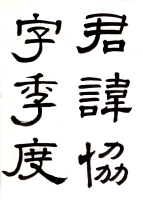 君諱協
字季度